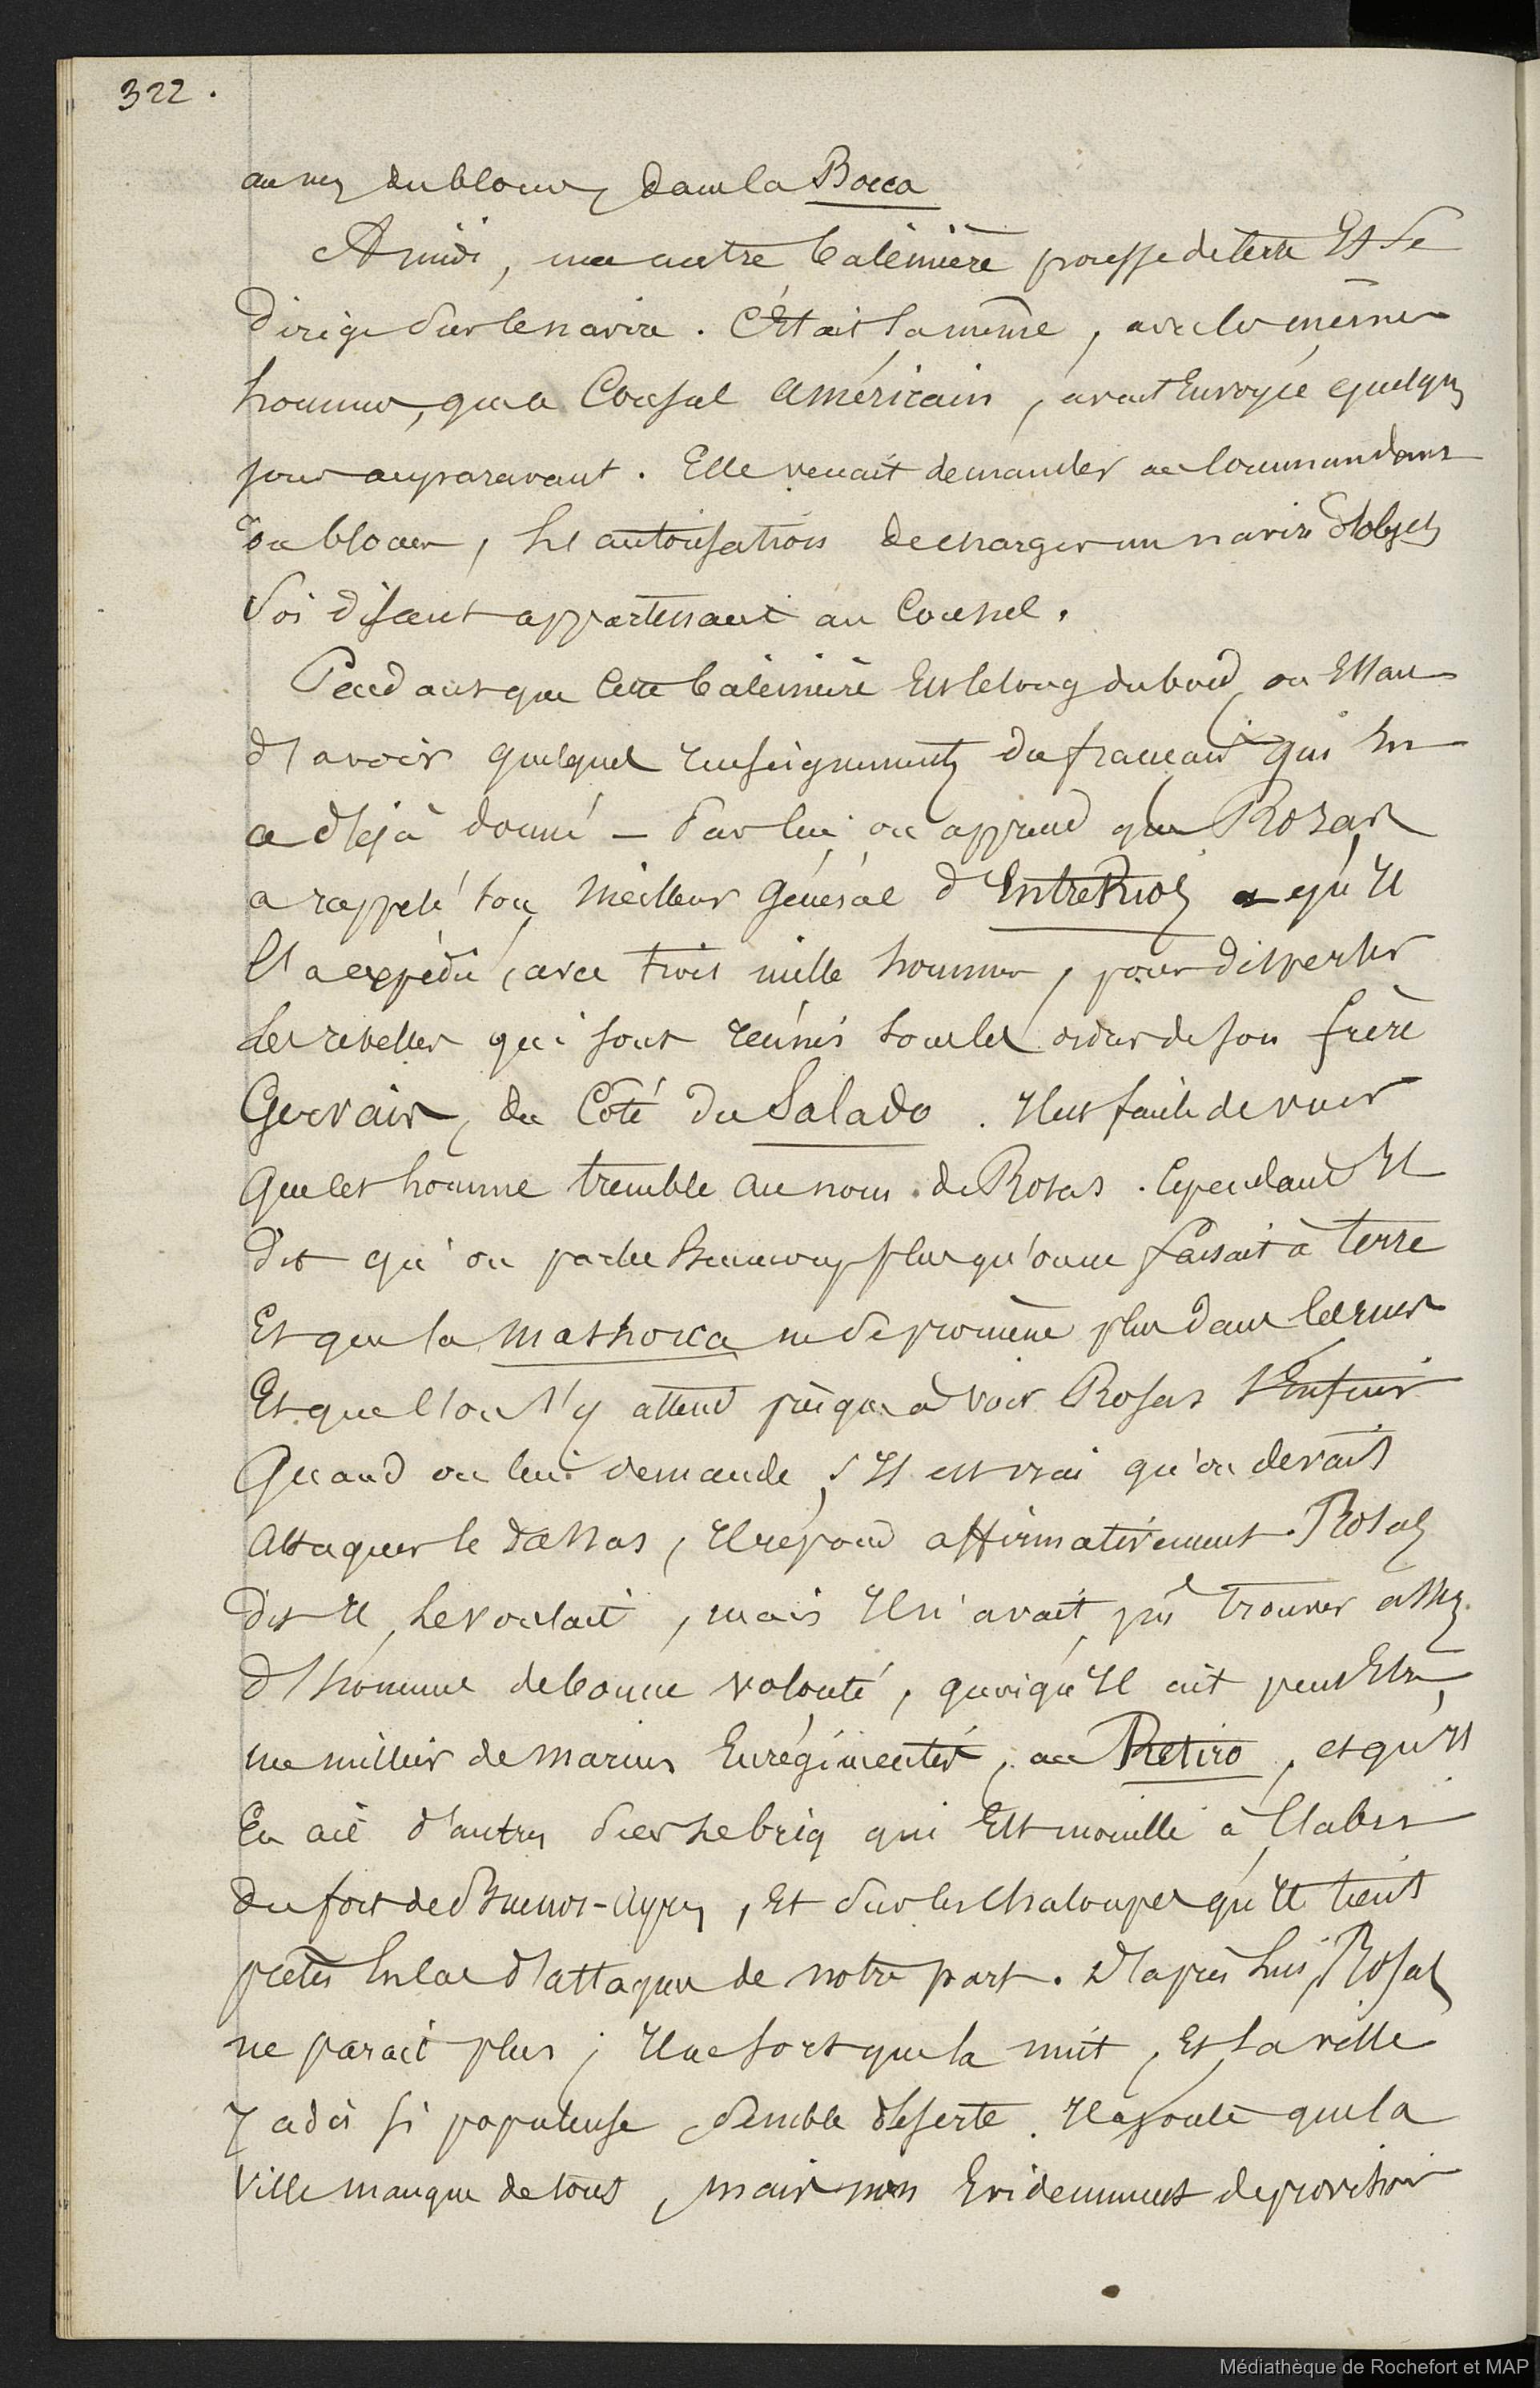 322.
au nez du blocus, dans la Bocca
A midi, une autre baleinière pousse de terre Et se
dirige sur le navire. C'Etait la même, avec les mêmes
hommes, que le Consul américain, avait Envoyée quelques
jours auparavant. Elle venait demander au Commandant
du blocus, l'autorisation de charger un navire d'objets
soi disant appartenant au Consul.
Pendant que cette baleinière Est le long du bord, on Essaie
d'avoir quelques renseignements du français qui en
a déjà donné — Par lui, on apprend que Rosas
a rappelé son meilleur général d'Entre Rios, qu'Il
l'a expédié, avec trois mille hommes, pour disperser
les rebelles qui sont réunis sous les ordres de son frère
Gervais, du Côté du Salado. Il est facile de voir
que cet homme tremble au nom de Rosas. Cependant Il
dit qu'on parle beaucoup plus qu'on ne faisait à terre
Et que la mashorca ne se promène plus dans les rues
Et que l'on s'y attend presque à voir Rosas s'Enfuir
Quand on lui demande, s'Il est vrai qu'on devait
attaquer le dassas, Il répond affirmativement. Rosas
dit Il, le voulait, mais Il n'avait pû trouver assez
d'hommes de bonne volonté, quoiqu'Il ait peut Etre,
un millier de marins Enrégimentés, au Retiro, et qu'Il
En ait d'autres sur le brig qui Est mouillé à l'abri
du fort de Buenos-Ayres, Et sur les chaloupes qu'Il tient
prêtes En cas d'attaque de notre part. D'après lui, Rosas
ne parait plus; Il ne sort que la nuit, Et la ville
Jadis si populeuse semble déserte. Il ajoute que la
Ville manque de tout, mais non Evidemment de provisions
Médiathèque de Rochefort et MAP